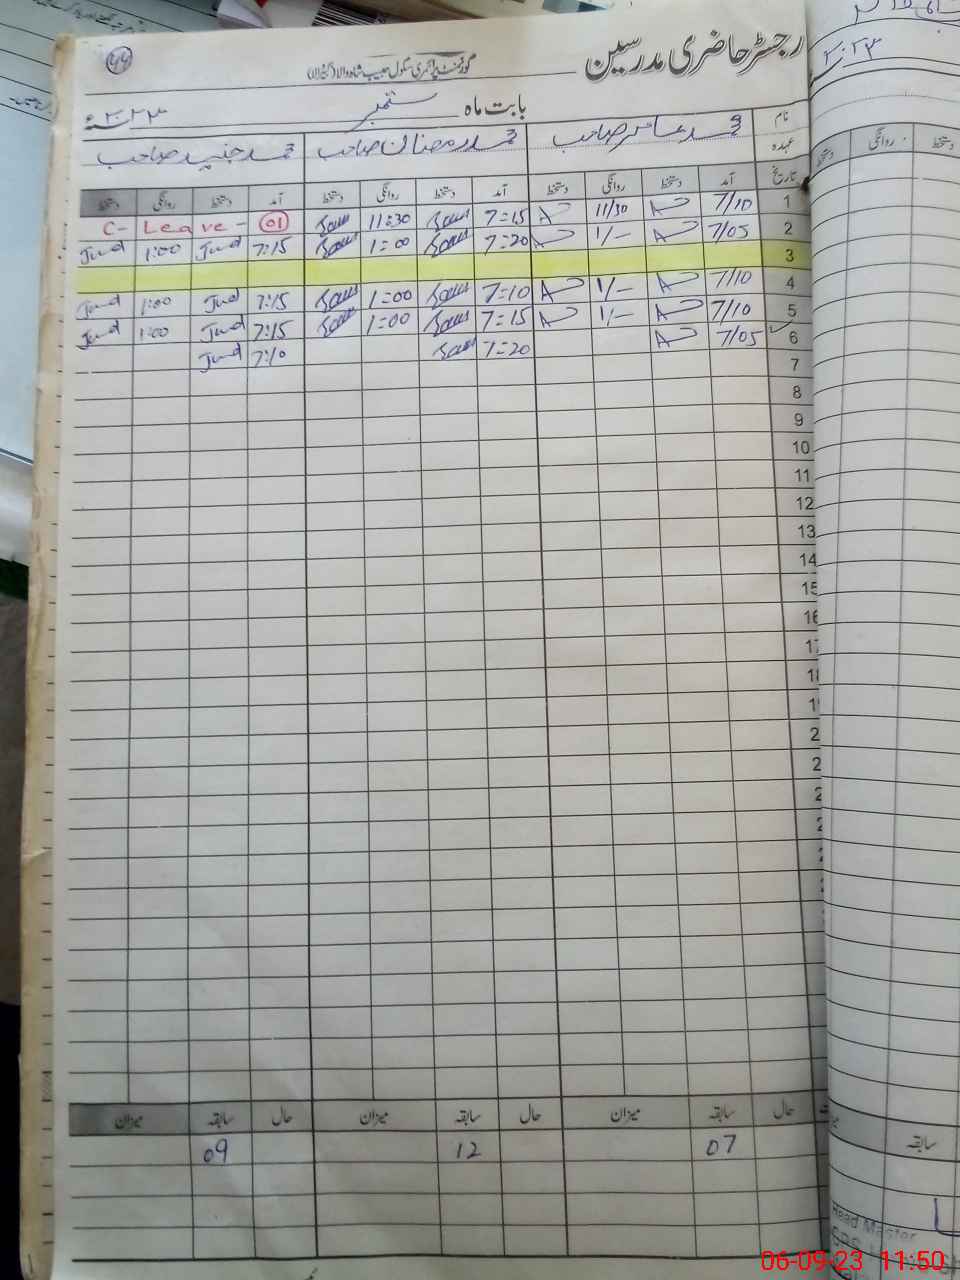 ۴۴
رجسٹر حاضری مدرسین
گورنمنٹ پرائمری سکول حبیب شاہ والا
بابت ماہ ستمبر ۲۰۲۳ء
نام محمد عامر صاحب محمد رمضان صاحب محمد جنید صاحب
عہدہ
تاریخ آمد دستخط روانگی دستخط آمد دستخط روانگی دستخط آمد دستخط روانگی دستخط
1 7/10 A 11/30 A 7:15 11:30 C- Leave - 01
2 7/05 A 1/- A 7:20 1:00 7:15 Jund 1:00 Jund
3
4 7/10 A 1/- A 7:10 1:00 7:15 Jund 1:00 Jund
5 7/10 A 1/- A 7:15 1:00 7:15 Jund 1:00 Jund
6 7/05 A 7:20 7:10 Jund
7
8
9
10
11
12
13
14
15
16
حال سابقہ میزان حال سابقہ میزان حال سابقہ میزان
07 12 09
۲۰۲۳
دستخط روانگی دستخط
سابقہ
Head Master
06-09-23 11:50